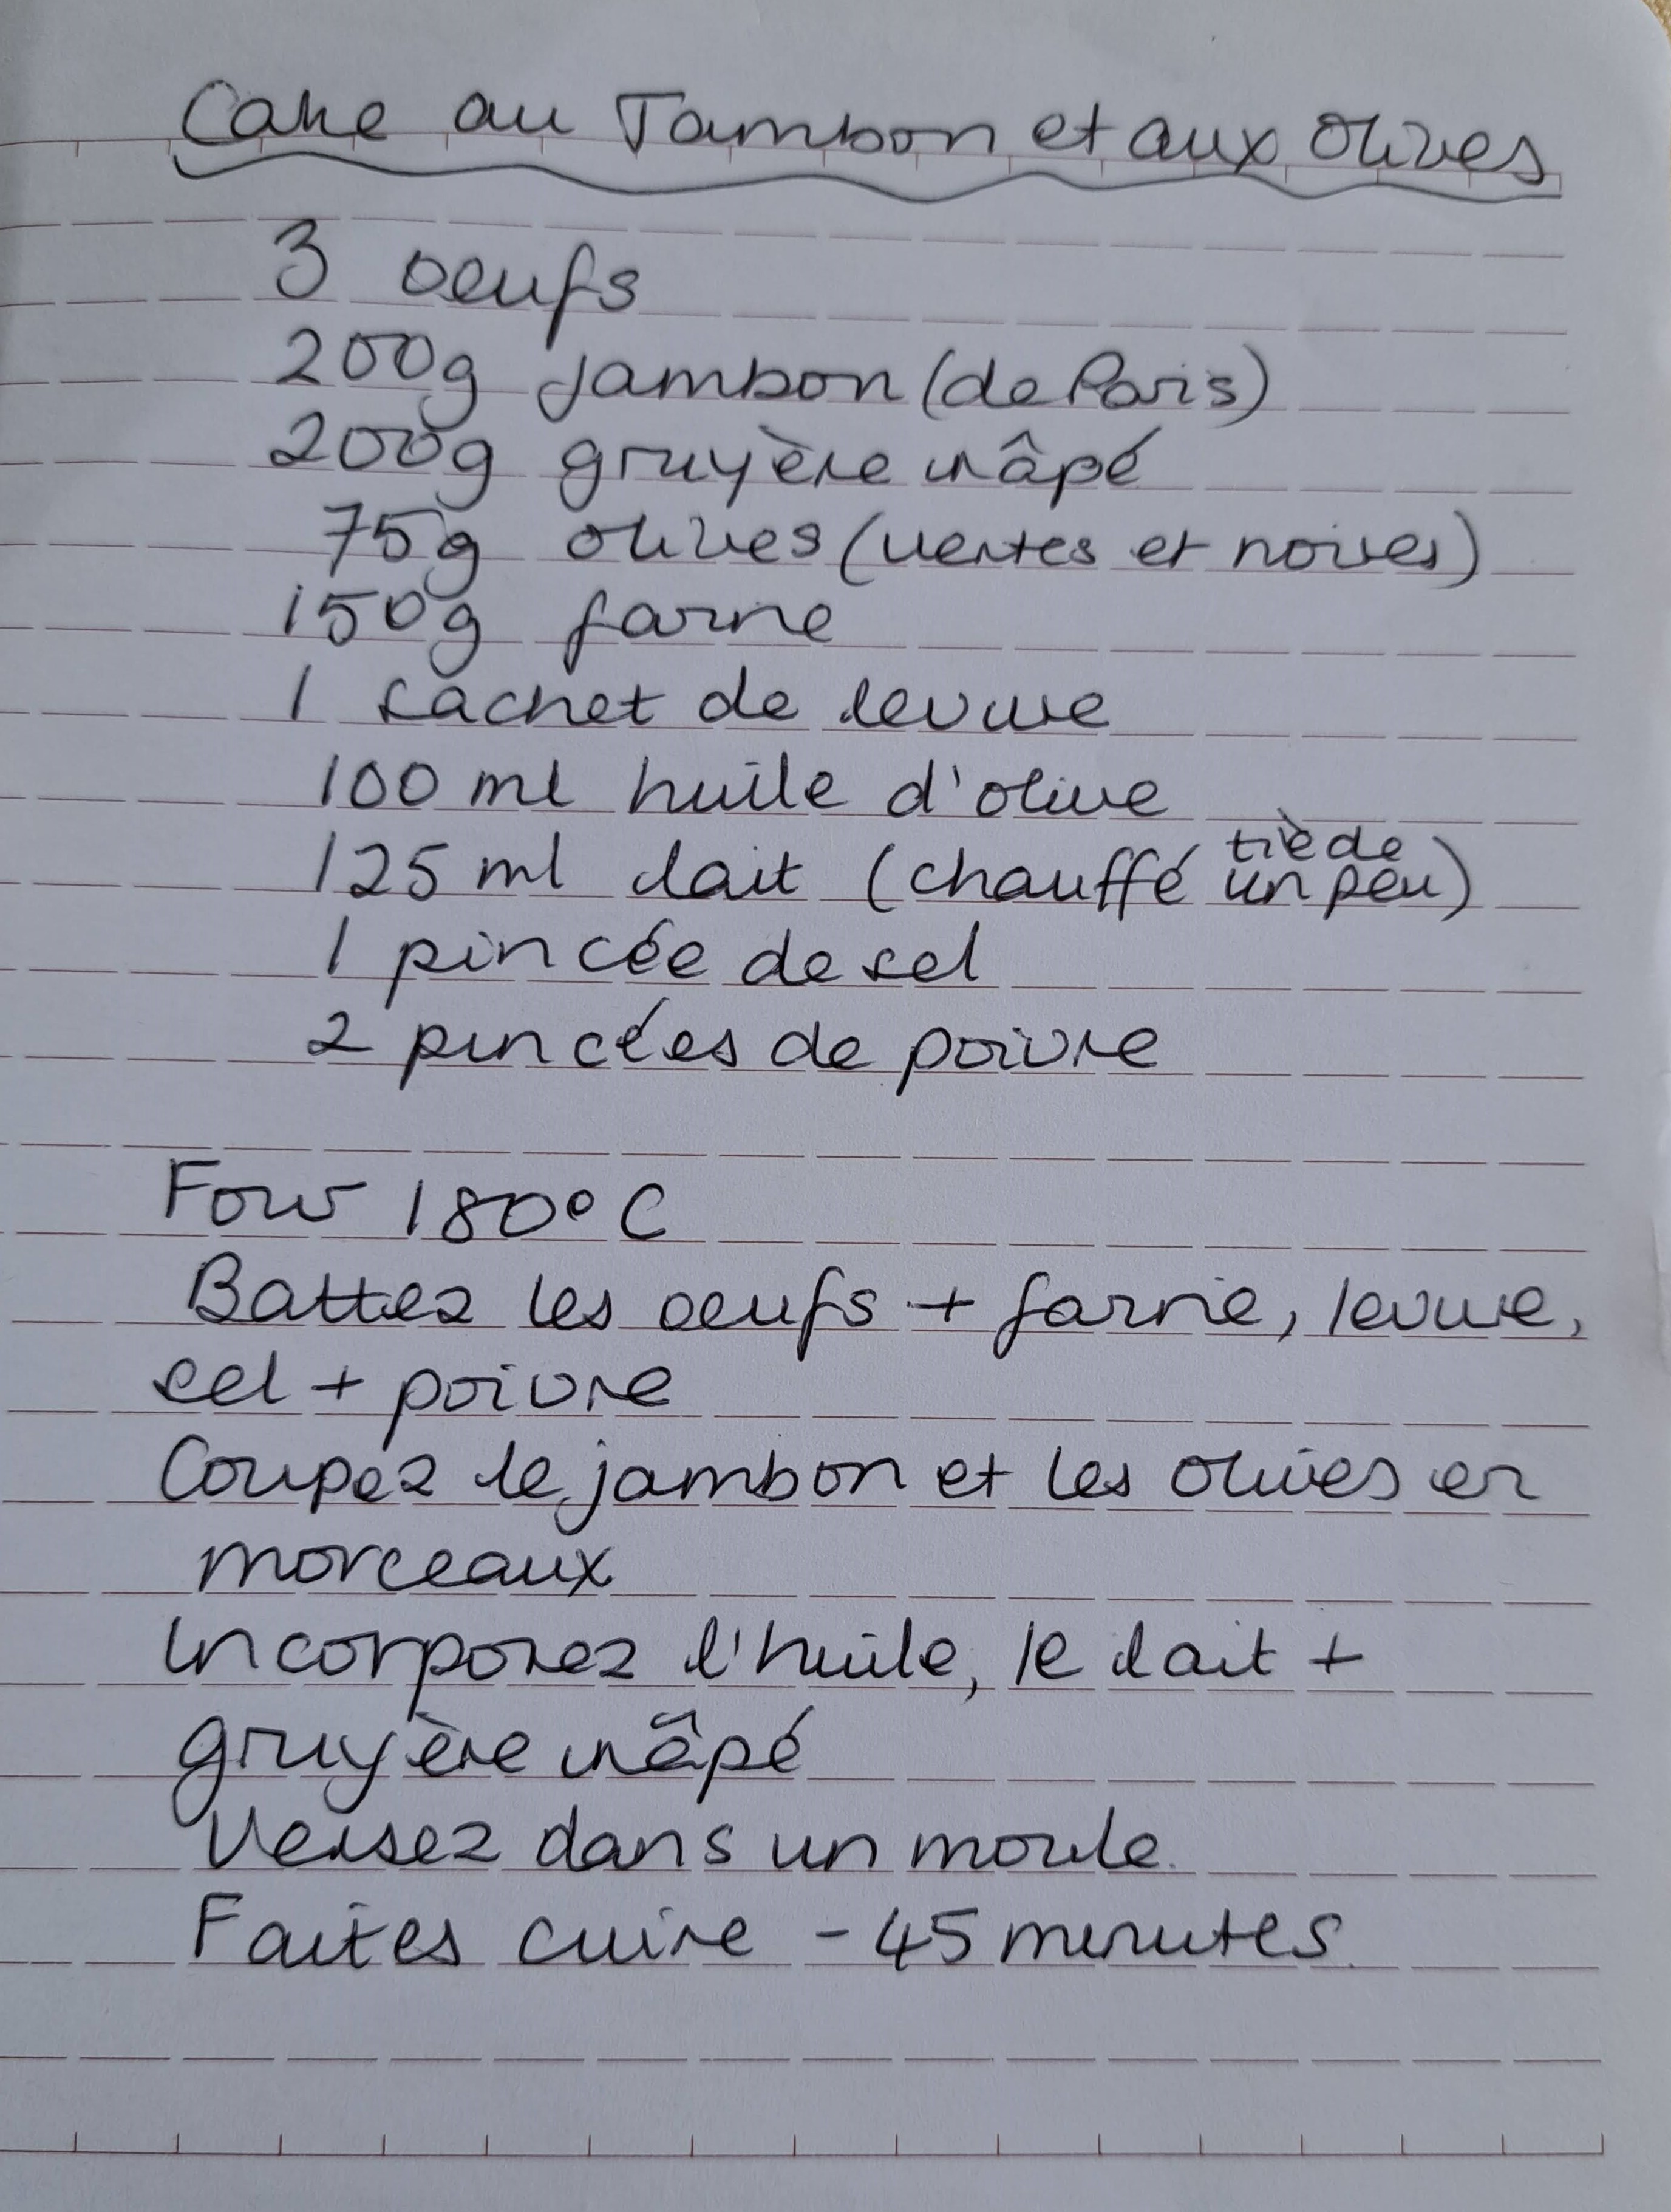 Cake au Jambon et aux Olives
3 oeufs
200g jambon (de Paris)
200g gruyère râpé
75g olives (vertes et noires)
150g farine
1 sachet de levure
100 ml huile d'olive
125 ml lait (chauffé tiède un peu)
1 pincée de sel
2 pincées de poivre
Four 180°C
Battez les oeufs + farine, levure,
sel + poivre
Coupez le jambon et les olives en
morceaux
Incorporez l'huile, le lait +
gruyère râpé
Versez dans un moule.
Faites cuire - 45 minutes.